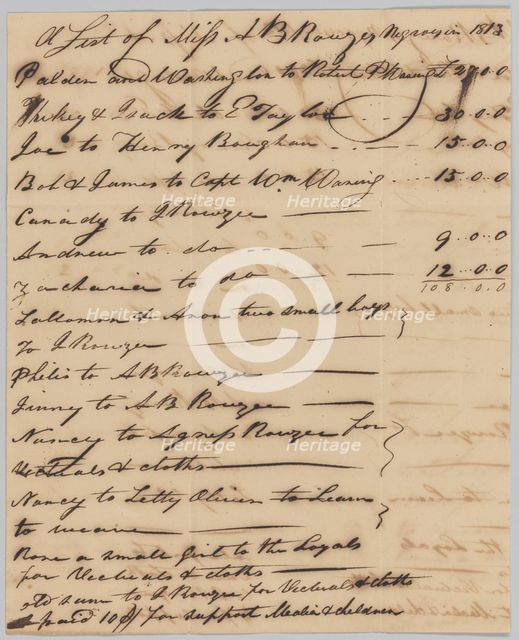 A List of Miss A B Rouzes Negroes in 1813
Palden and Washington to Robert P Waring £ 27..0..0
& Isack to E Taylor 30..0..0
Joe to Henry Boughan 15..0..0
Bob & James to Capt Wm Waring 15..0..0
Canady to J Rowzee
Andrew to do 9..0..0
Zacharia to do 12..0..0
108..0..0
Sallamon & Aron two small boys
To J Rowzee
Philis to A B Rowzee
Jinney to A B Rowzee
Nancy to Agness Rowzee for
Victuals & cloths
Nancy to Letty Oliver to Learn
to weave
Rose a small girl to the Loyals
for Victuals & cloths
old to J Rouzee for Victuals & cloths
paid 10$ for support Media & children
Heritage
Heritage
Heritage
Heritage
Heritage
Heritage
©